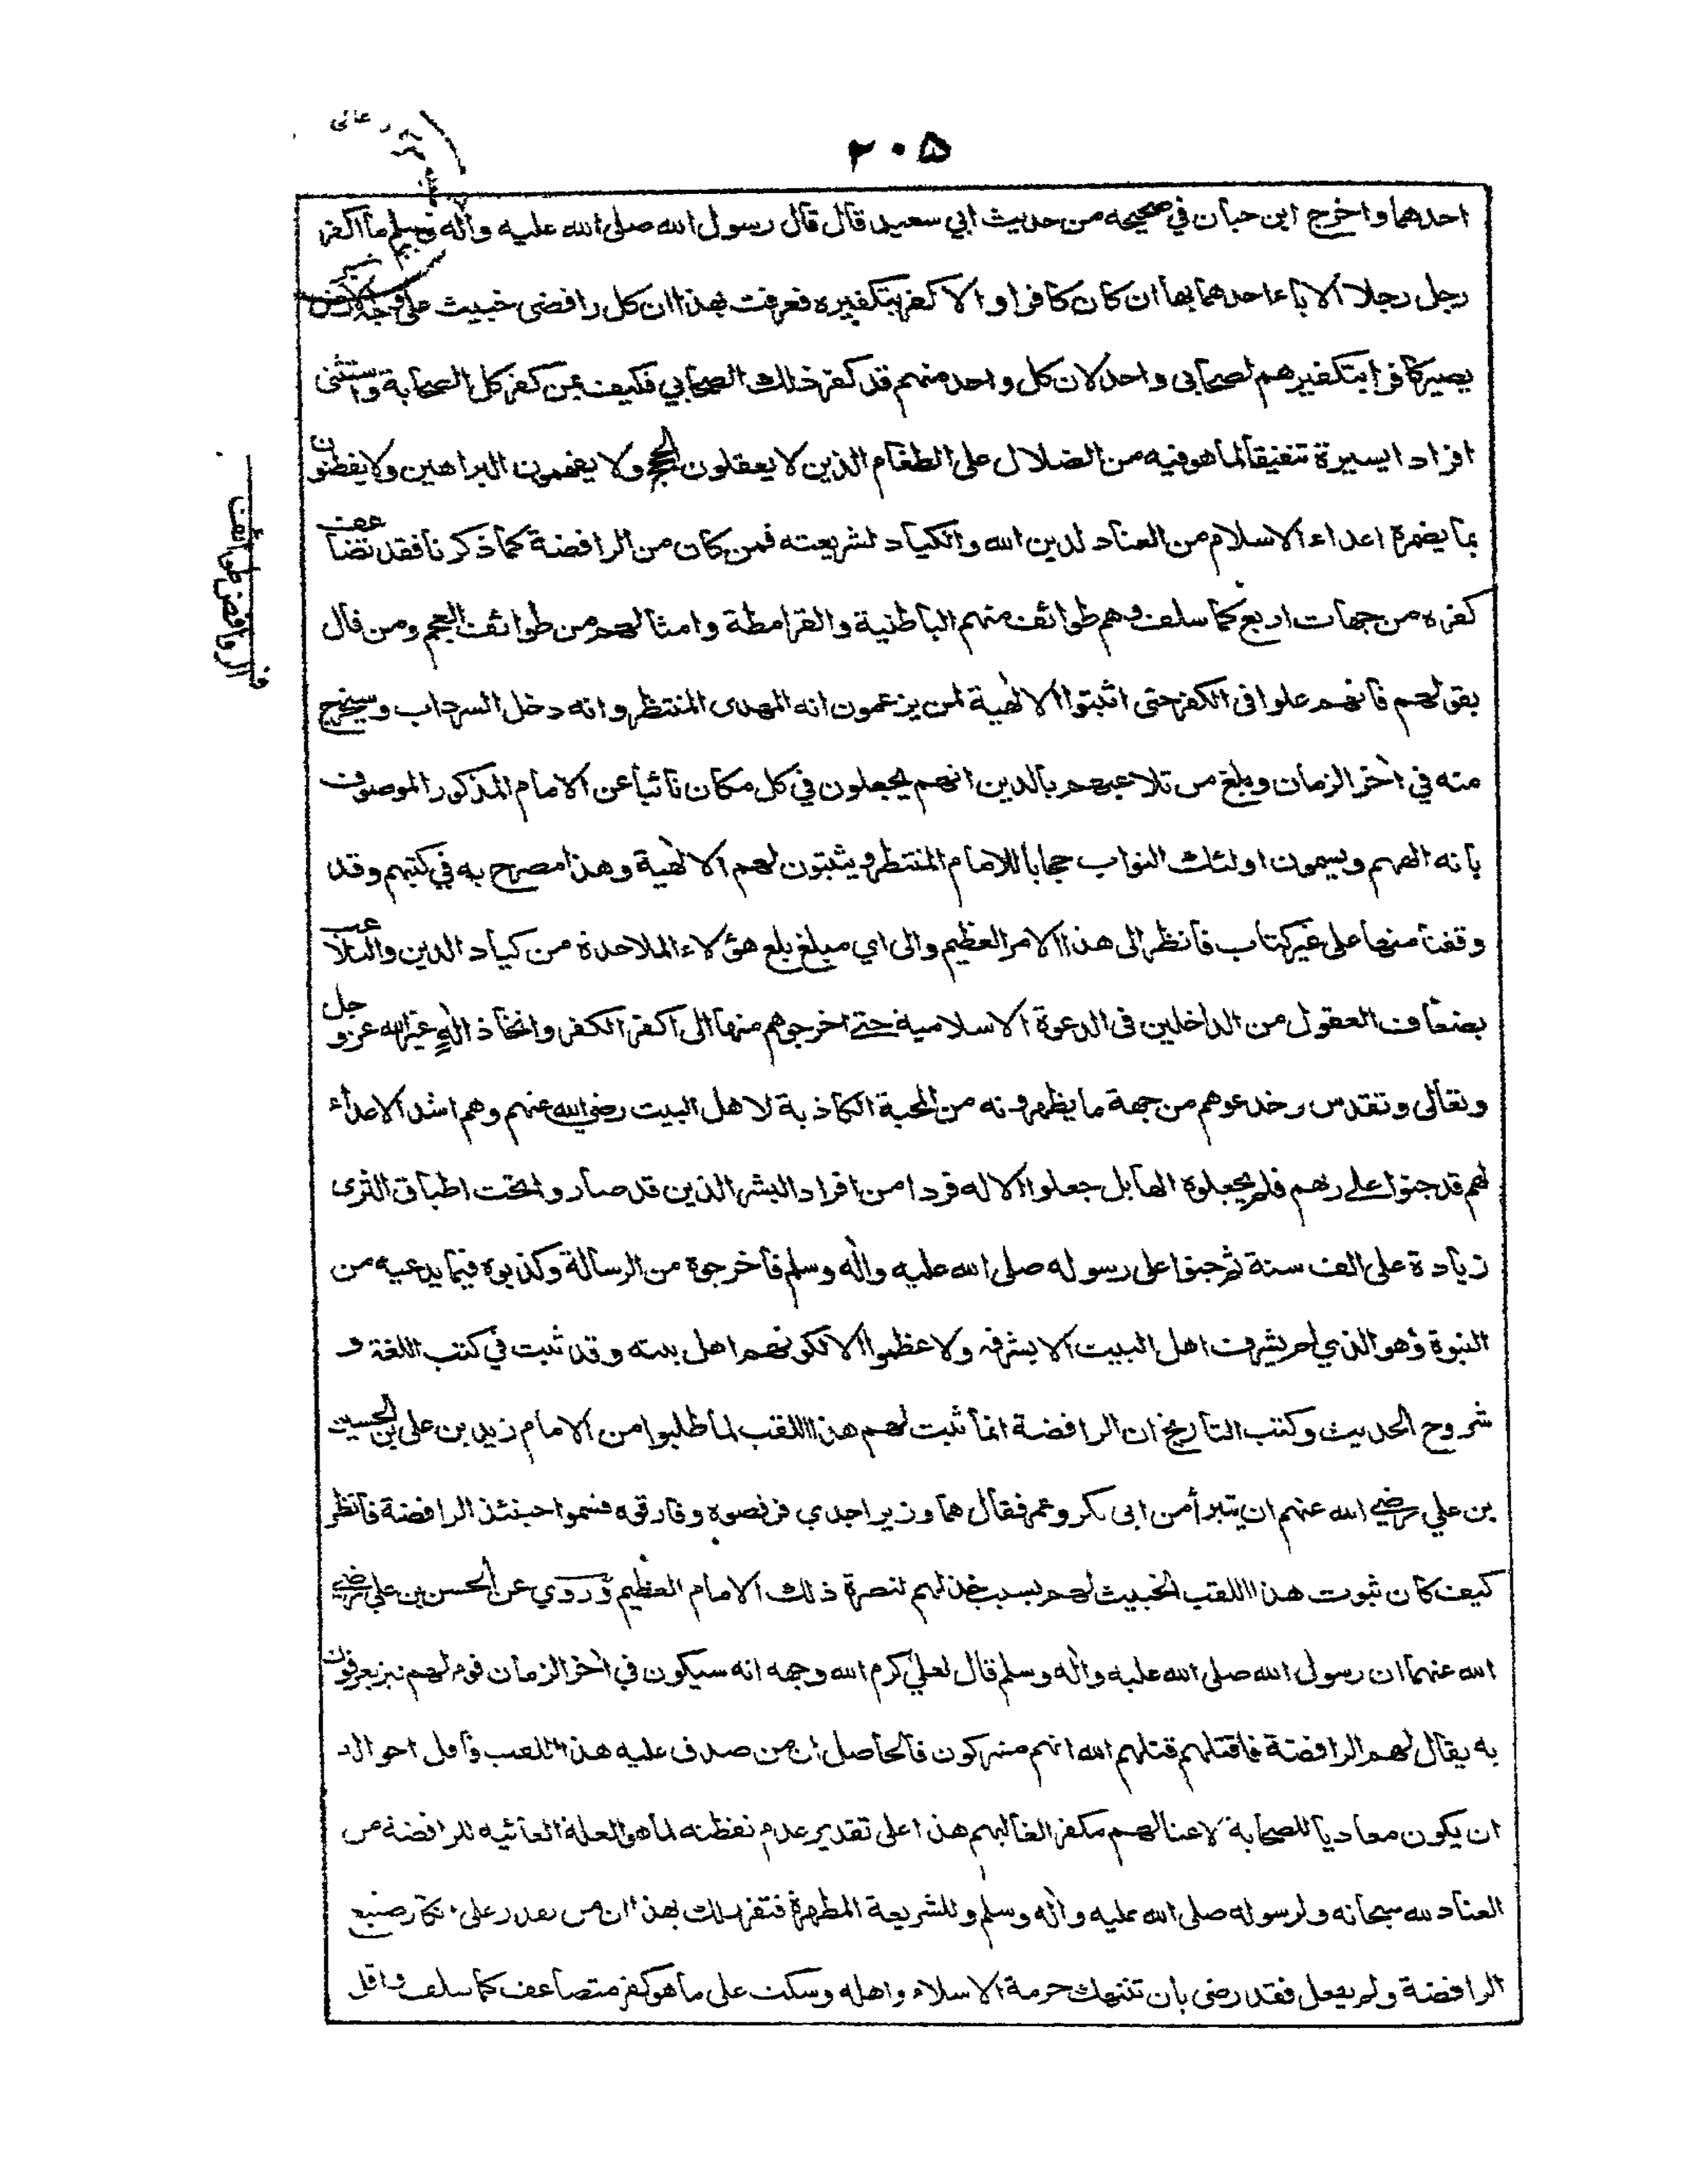 ٢٠٥
احدهما واخرج ابن حبان في صحيحه من حديث ابي سعيد قال قال رسول الله صلى الله عليه واله وسلم ما اكفر
رجل رجلا الا باء احدهما بها ان كان كافرا والا كفر بتكفيره فعرفت بهذا ان كل رافضى خبيث على وجه الارض
يصير كافرا بتكفيرهم لصحابى واحد لان كل واحد منهم قد كفر ذلك الصحابي فكيف بمن كفر كل الصحابة واستثنى
افرادا يسيرة تنفيقا لما هو فيه من الضلال على الطغام الذين لا يعقلون الحجج ولا يفهمون البراهين ولا يفطنون
بما يضمره اعداء الاسلام من العناد لدين الله والكياد لشريعته فمن كان من الرافضة كما ذكرنا فقد تضاعف
كفره من جهات اربع كما سلف وهم طوائف منهم الباطنية والقرامطة وامثالهم من طوائف العجم ومن قال
بقولهم فانهم غلوا فى الكفر حتى اثبتوا الالهية لمن يزعمون انه المهدى المنتظر وانه دخل السرداب وسيخرج
منه في اخر الزمان وبلغ من تلاعبهم بالدين انهم يجعلون في كل مكان نائبا عن الامام المذكور الموصوف
بانه الههم ويسمون اولئك النواب حجابا للامام المنتظر ويثبتون لهم الالهية وهذا مصرح به في كتبهم وقد
وقفنا منها على غير كتاب فانظر الى هذا الامر العظيم والى اي مبلغ بلغ هؤلاء الملاحدة من كياد الدين والتلاعب
بضعاف العقول من الداخلين فى الدعوة الاسلامية حتى اخرجوهم منها الى اكفر الكفر واتخاذ اله غير الله عز وجل
وتعالى وتقدس وخدعوهم من جهة ما يظهرونه من المحبة الكاذبة لاهل البيت رضي الله عنهم وهم اشد الاعداء
لهم قد جنوا على ربهم فلم يجعلوه الها بل جعلوا الاله فردا من افراد البشر الذين قد صاروا تحت اطباق الثرى
زيادة على الف سنة ثم جنوا على رسوله صلى الله عليه واله وسلم فاخرجوه من الرسالة وكذبوه فيما يدعيه من
النبوة وهو الذي لم يشرف اهل البيت الا بشرفه ولا عظموا الا لكونهم اهل بيته وقد ثبت في كتب اللغة و
شروح الحديث وكتب التاريخ ان الرافضة انما ثبت لهم هذا اللقب لما طلبوا من الامام زيد بن على بن الحسين
بن علي رضي الله عنهم ان يتبرأ من ابى بكر وعمر فقال هما وزيرا جدي فرفضوه وفارقوه فسموا حينئذ الرافضة فانظر
كيف كان ثبوت هذا اللقب الخبيث لهم بسبب خذلهم لنصرة ذلك الامام العظيم وروي عن الحسن بن علي رضي
الله عنهما ان رسول الله صلى الله عليه واله وسلم قال لعلي كرم الله وجهه انه سيكون في اخر الزمان قوم لهم نبز يعرفون
به يقال لهم الرافضة فاقتلهم قتلهم الله انهم مشركون فالحاصل ان من صدق عليه هذا اللقب واقل احواله
ان يكون معاديا للصحابة لاعنا لهم مكفر الغالبهم هذا على تقدير عدم تفظنه لما هو العلة الغائيه للرافضة من
العناد لله سبحانه ولرسوله صلى الله عليه واله وسلم وللشريعة المطهرة فتقرر لك بهذا ان من يقدر على صنيع
الرافضة ولم يفعل فقد رضى بان تنتهك حرمة الاسلام واهله وسكت على ما هو كفر متضاعف كما سلف واقل
الروافض طوائف